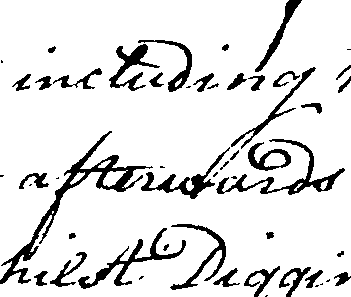 including
afterwards
hilst Diggin